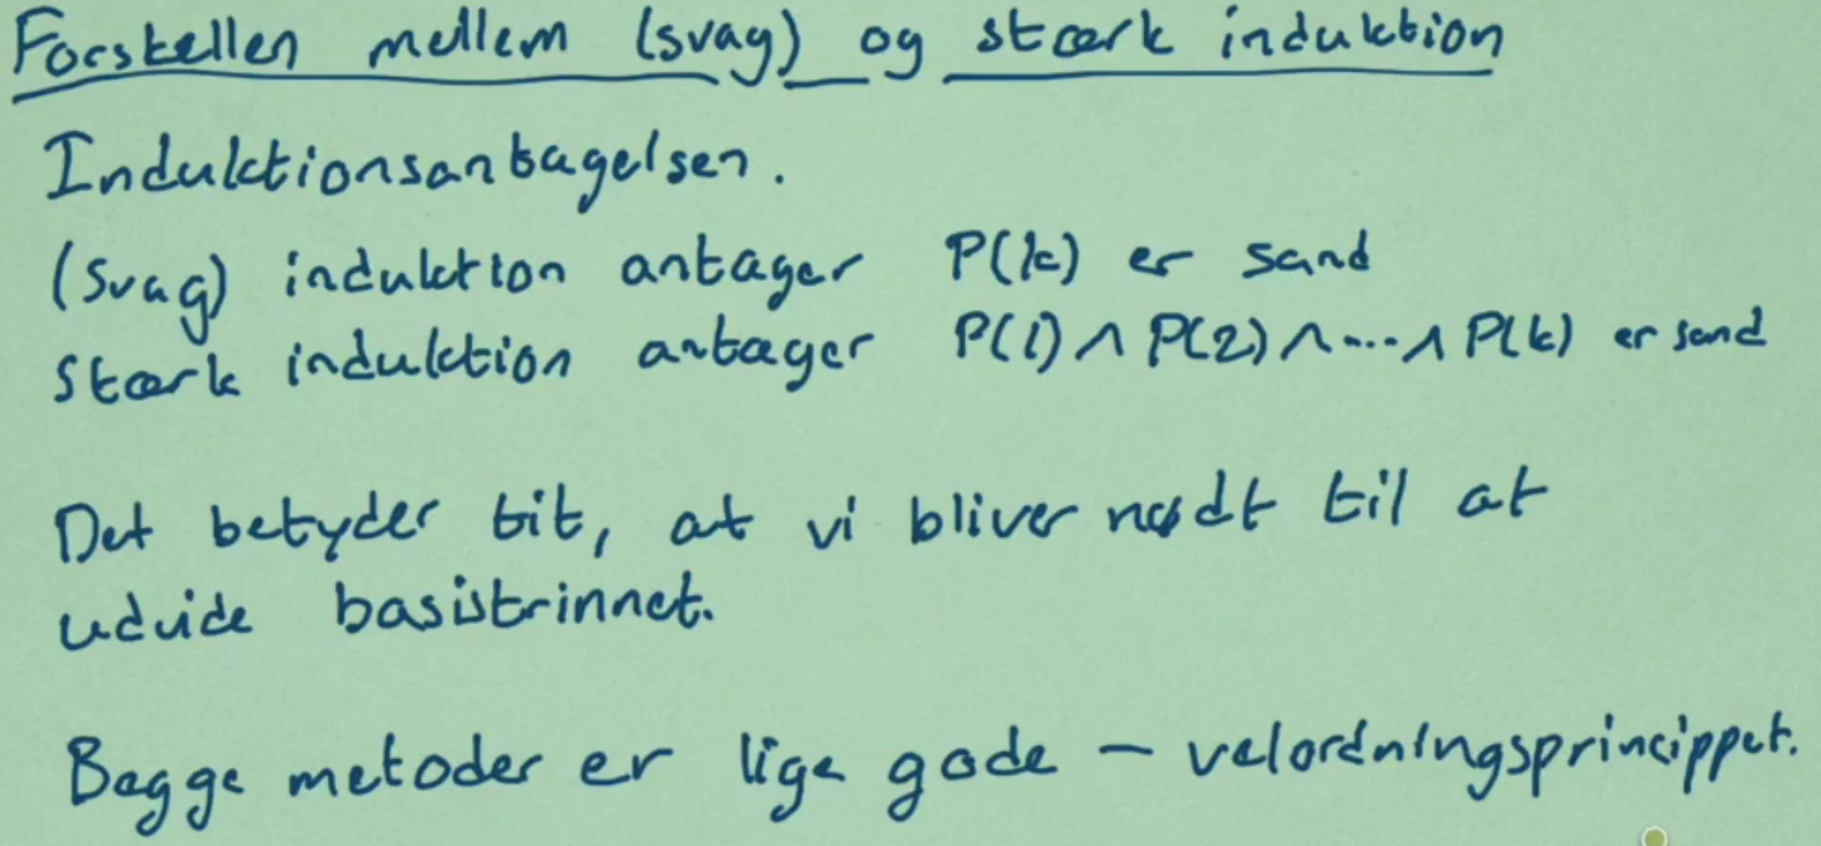 Forskellen mellem (svag) og stærk induktion
Induktionsantagelsen.
(Svag) induktion antager P(k) er sand
Stærk induktion antager P(1) ∧ P(2) ∧ ... ∧ P(k) er sand
Det betyder tit, at vi bliver nødt til at
udvide basistrinnet.
Begge metoder er lige gode – velordningsprincippet.